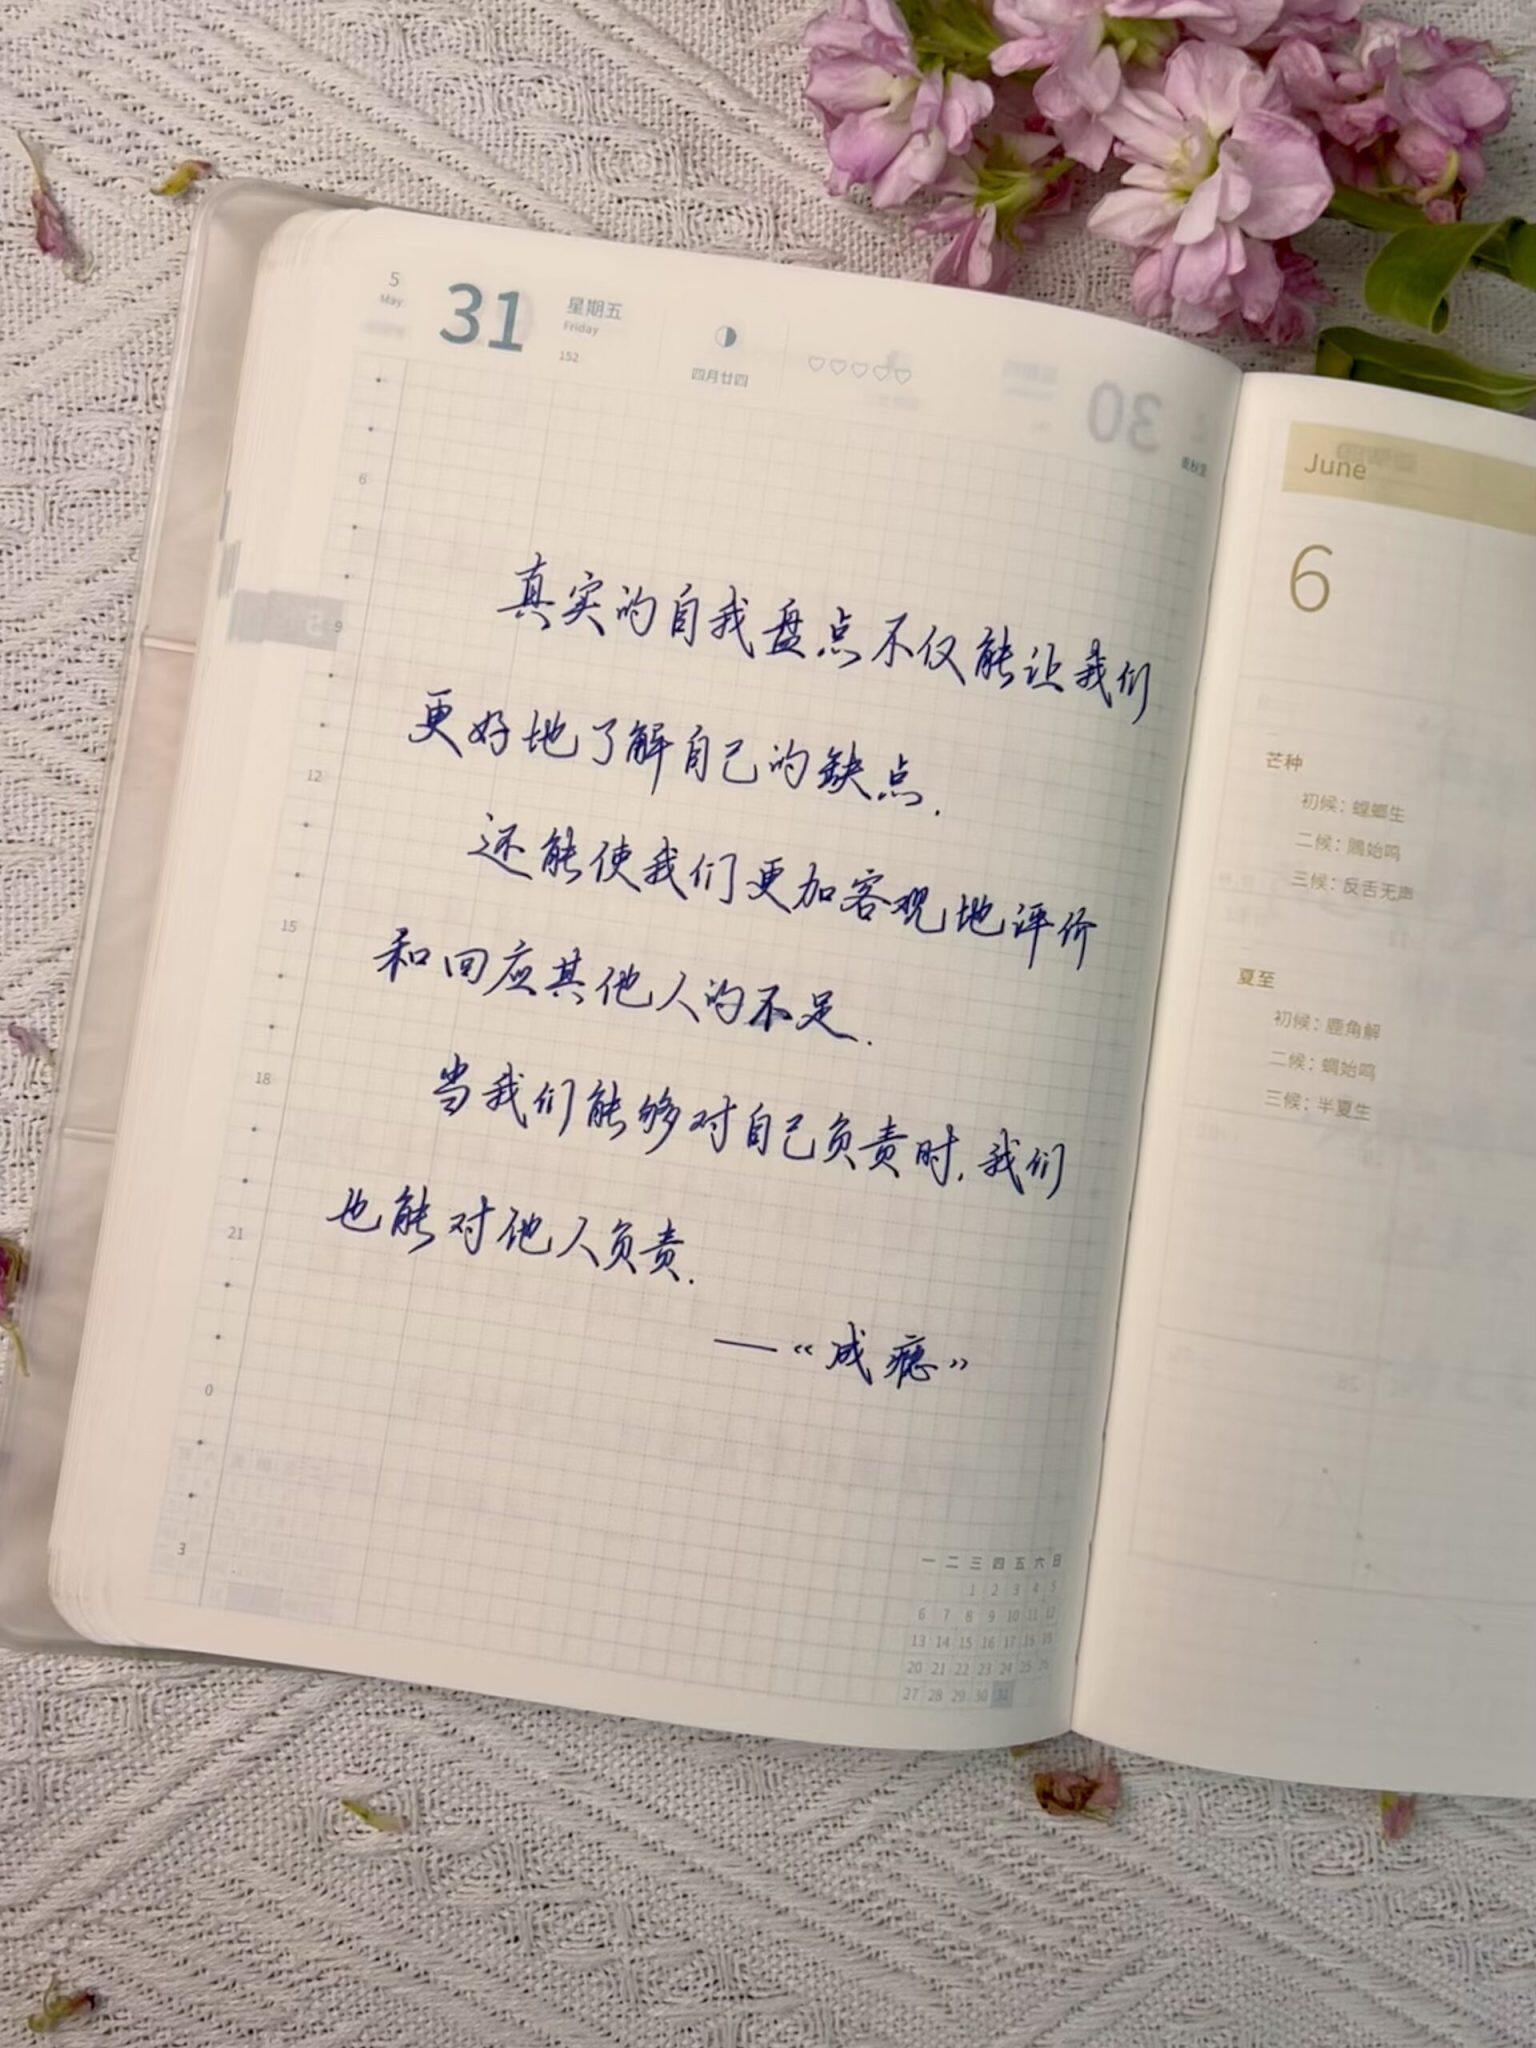 5
May
31
星期五
Friday
152
四月廿四
6
9
12
15
18
21
0
3
真实的自我盘点不仅能让我们
更好地了解自己的缺点.
还能使我们更加客观地评价
和回应其他人的不足.
当我们能够对自己负责时.我们
也能对他人负责.
——“成瘾”
一 二 三 四 五 六 日
1 2 3 4 5
6 7 8 9 10 11 12
13 14 15 16 17 18 19
20 21 22 23 24 25 26
27 28 29 30 31
30
June
6
芒种
初候：螳螂生
二候：鵙始鸣
三候：反舌无声
夏至
初候：鹿角解
二候：蜩始鸣
三候：半夏生